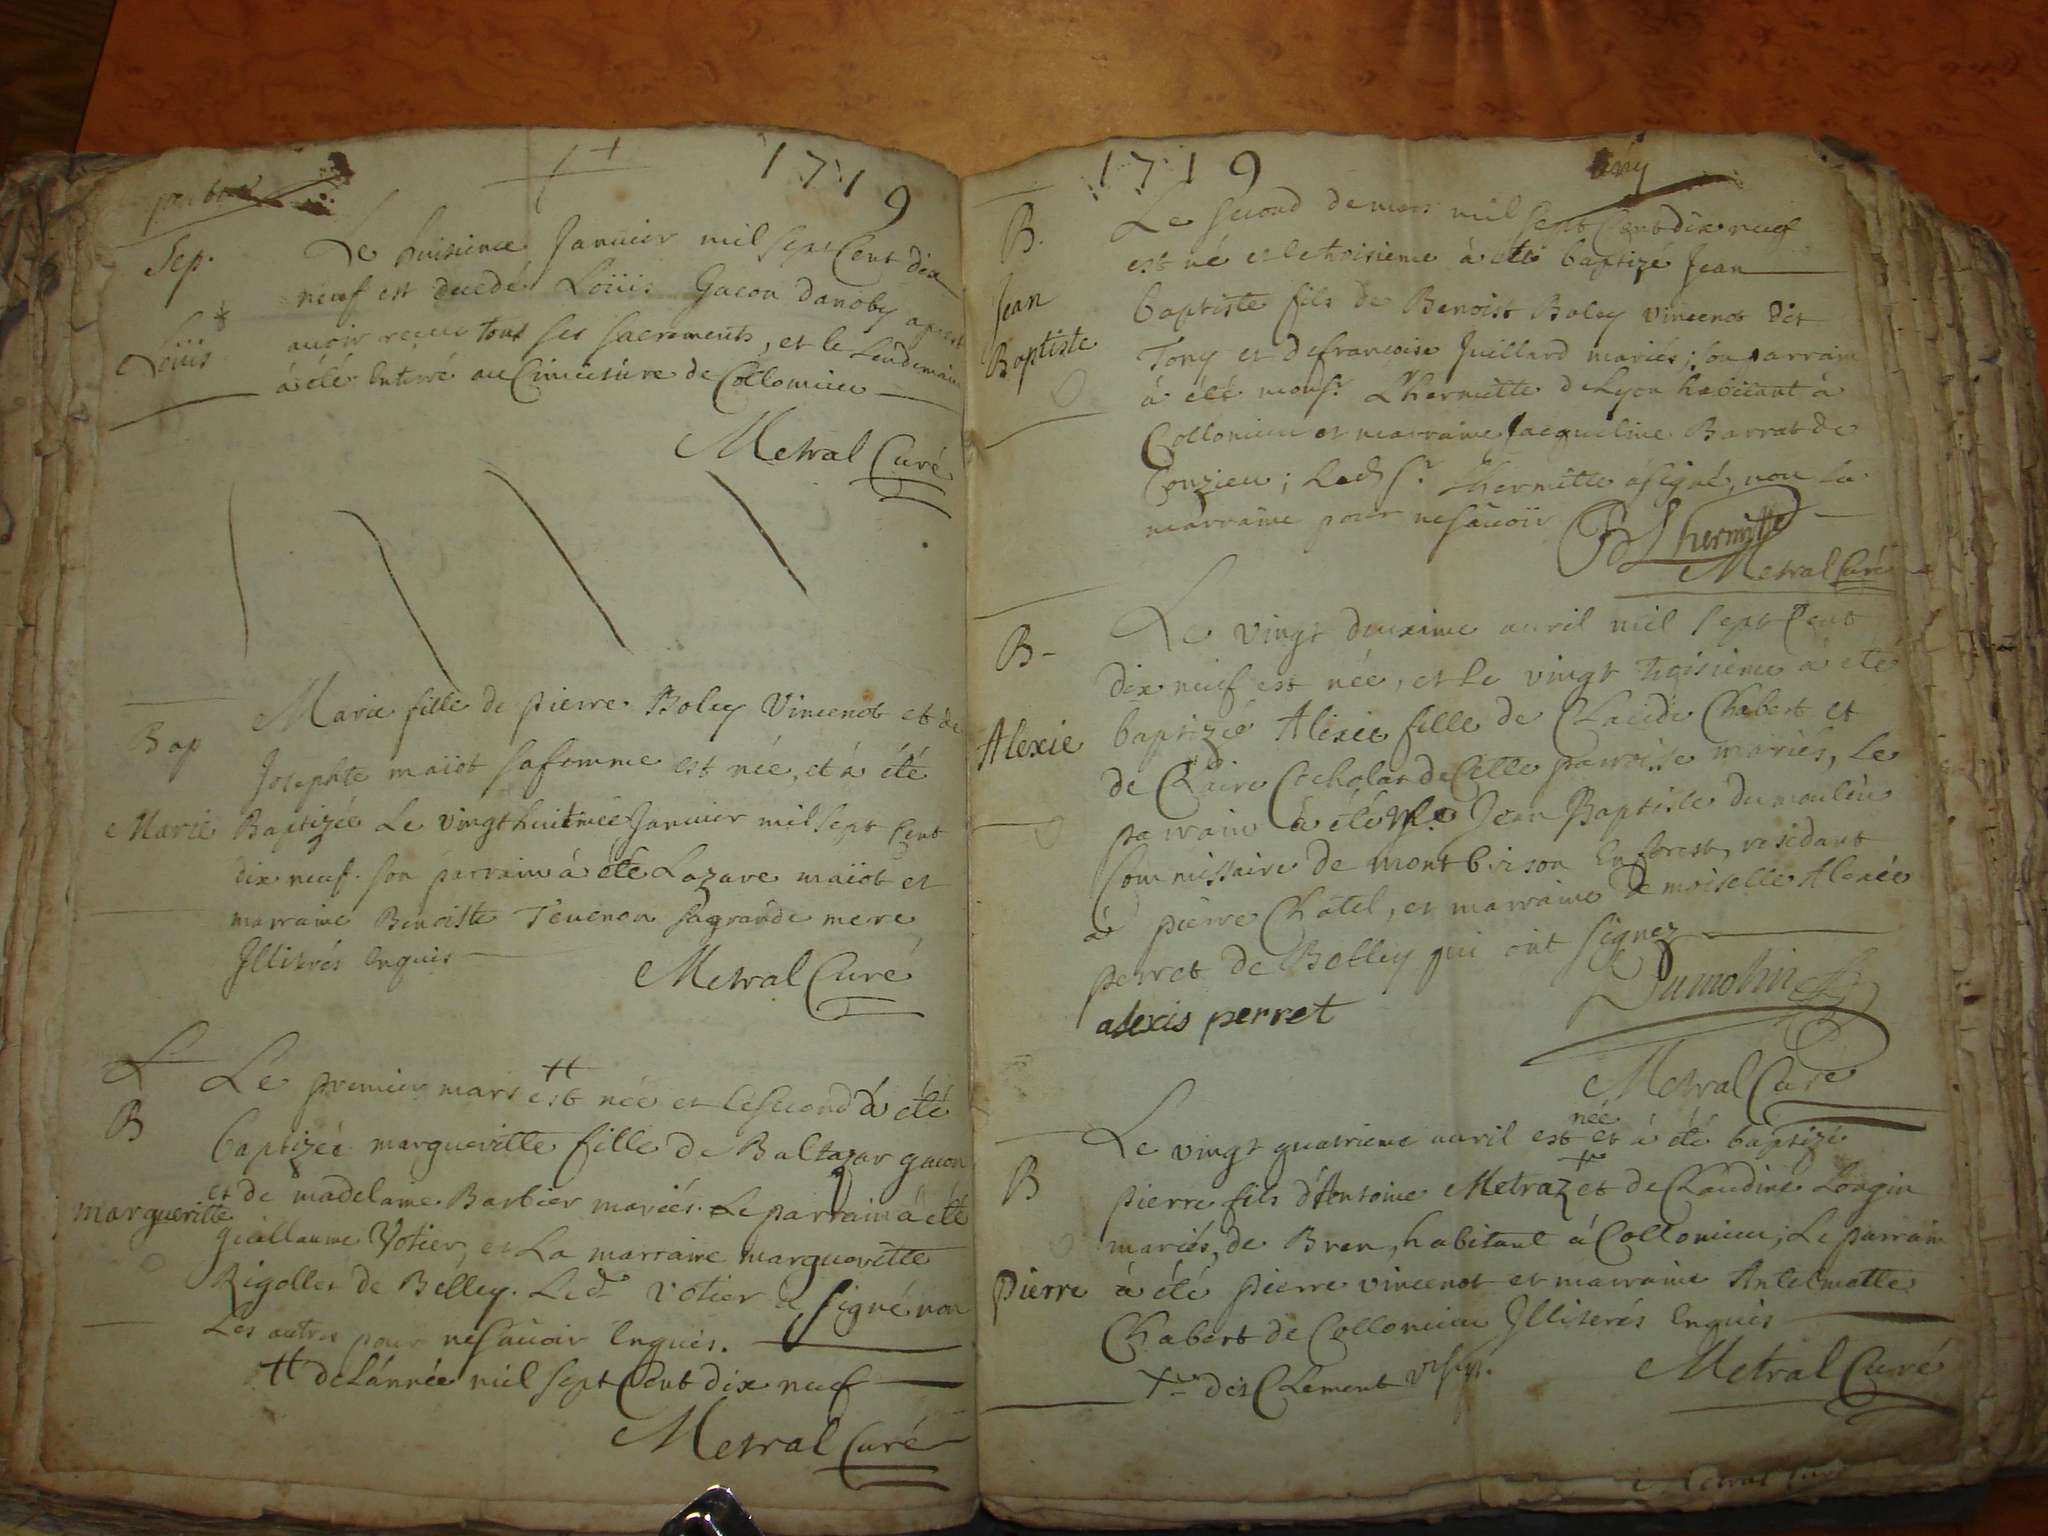 1719
Sep.
Loüis
Le huisieme Janvier mil sept Cent dix
neuf est decedé Loüis Gacon d'anoby apres
avoir receu tous ses sacrements, et le lendemain
à été enterré au Cimitiere de Collomieu
Metral Curé
Bap
Marie
Marie fille de pierre Boley Vincenot et de
Josephte maiot sa femme est née, et à été
Baptizée Le vingt huitmée Janvier mil sept Cent
dix neuf. son parrain à été Lazare maiot et
marraine Benoiste Tevenon sa grande mere
Illiterés Enquis
Metral Curé
B
margueritte
Le premier mars # est née et le second à été
baptizée margueritte fille de Baltazar gacon
et de madelaine Barbier mariés. Le parrain à été
guillaume Votier, et La marraine margueritte
Rigollet de Belley. Led. Votier a signé non
Les autres pour ne sauoir Enquis.
# de L'année mil sept Cent dix neuf
Metral Curé
1719
B.
Jean
Baptiste
Le second de mars mil sept Cent dix neuf
est né et le troisieme à été baptizé Jean
baptiste fils de Benoist Boley vincenot dit
Tony et de francoise Juillard mariés; son parrain
à été monsr. Lhermitte de Lyon habitant à
Collomieu et marraine Jacqueline Barrat de
Conzieu; Led. Sr. Lhermitte a signé, non La
marraine pour ne sauoir
Lhermitte
Metral Curé
B-
Alexie
Le vingt deuxime auril mil sept Cent
dix neuf est née, et le vingt troisieme à été
baptizée Alexie fille de Claude Chabert et
de Claire Cocholat de Cette parroisse mariés, Le
parrain à été Mr. Jean Baptiste dumoulin
Commissaire de montbrison En forest, residant
à pierre Chatel, et marraine demoiselle Alexie
perret de Belley qui ont signez
alexis perret
Dumolin
Metral Curé
B
Pierre
Le vingt quatrieme auril est née et à été baptizé
pierre fils d'Antoine Metraz + et de Claudine Longin
mariés, de Bren, habitant à Collomieu; Le parrain
à été pierre vincenot et marraine Antelmette
Chabert de Collomieu Illiterés Enquis
+ dit Clement
Metral Curé
Metral Curé